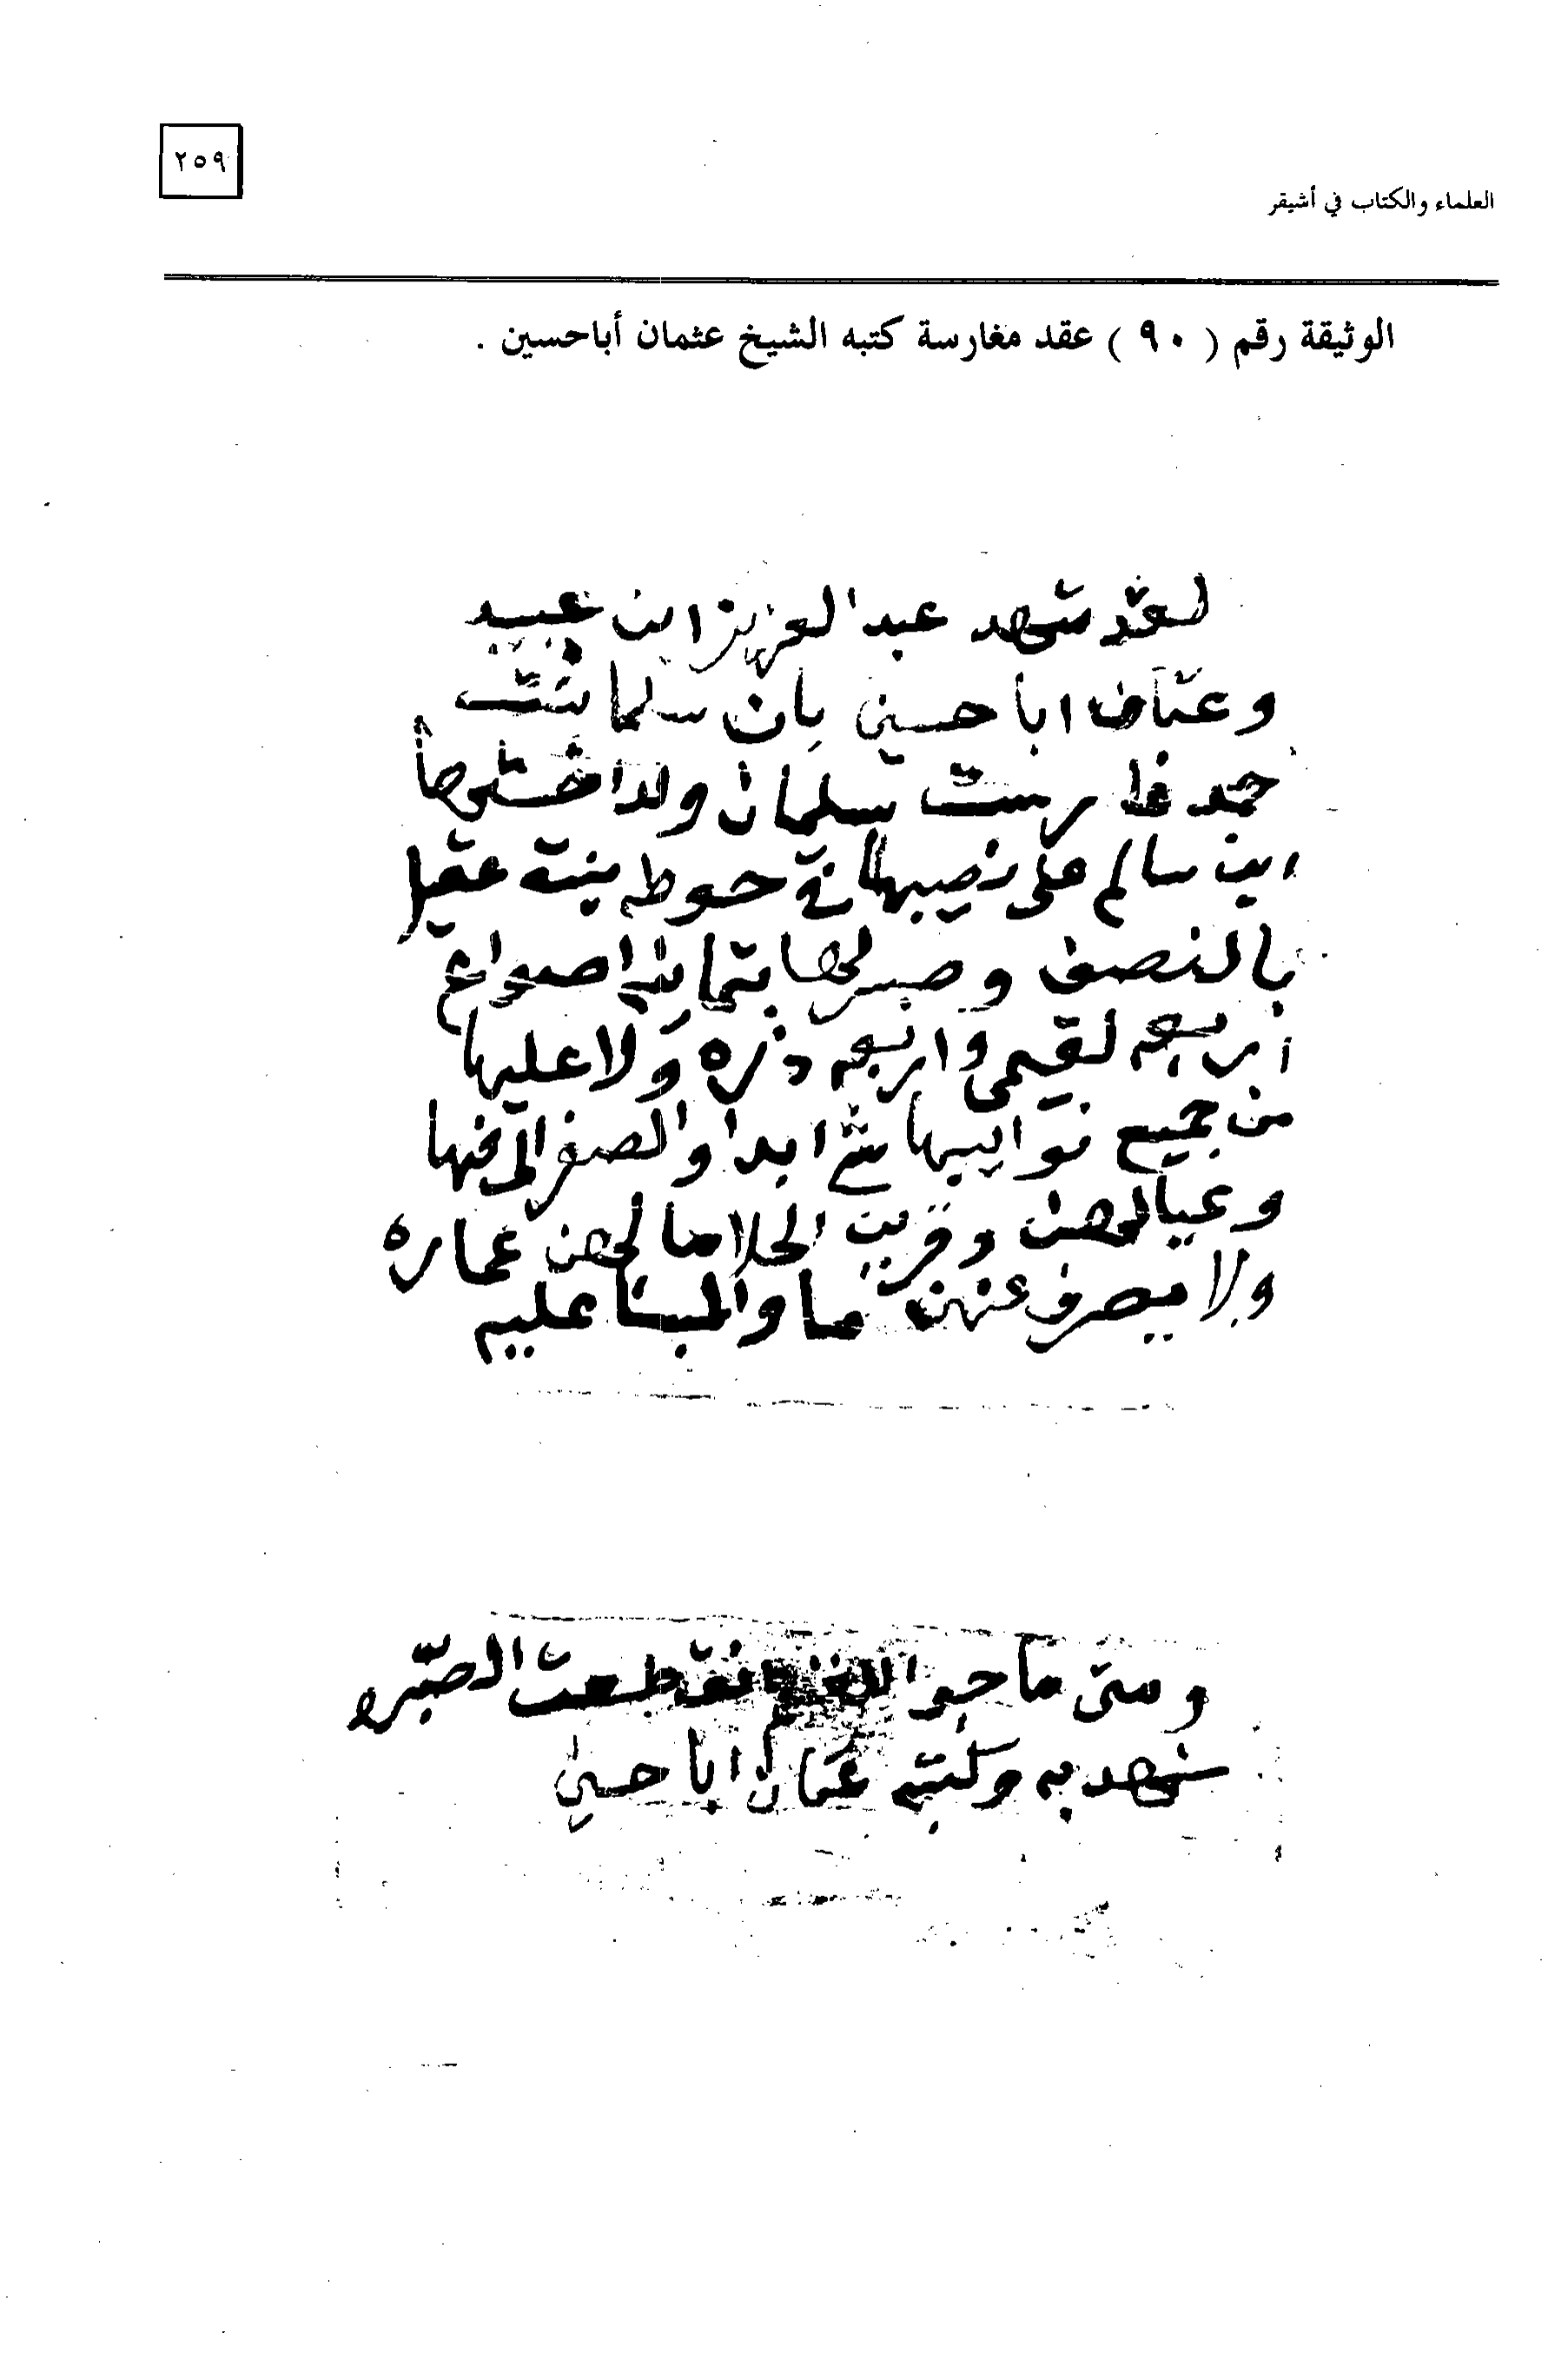 ٢٥٩
العلماء والكتاب في أشيقر
الوثيقة رقم ( ٩٠ ) عقد مغارسة كتبه الشيخ عثمان أباحسين .
لقد شهد عبدالعزيز ابن عبيد
وعثمان اباحسين بان سلما بنت
حمد غارست سلمان ولد
ابن سالم على نصيبها في حوطة بنت عقيل
بالنصف وصبرلها بثمانية اصواع
اربعه لقيمى واربعه ذره ولا عليها
من جميع نوايبها شي ابدا والصفر الى فيها
وعيالهن وقرين الحلا ما لهن عماره
ولا يصرف عنهن ما والمبنا عليه
ومتى ما جو انقطعت الصبره
شهد به وكتبه عثمان اباحسين